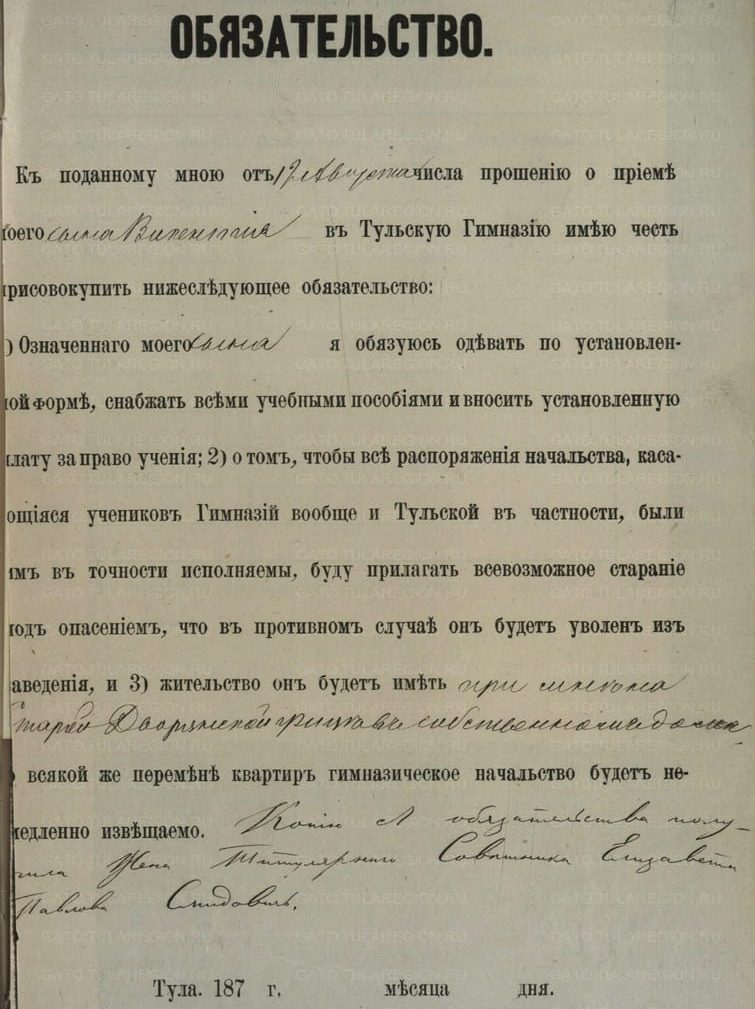 ОБЯЗАТЕЛЬСТВО.
Къ поданному мною отъ 17 Августа числа прошенію о пріемѣ
моего сына Викентія въ Тульскую Гимназію имѣю честь
присовокупить нижеслѣдующее обязательство:
) Означеннаго моего сына я обязуюсь одѣвать по установлен-
ной формѣ, снабжать всѣми учебными пособіями и вносить установленную
плату за право ученія; 2) о томъ, чтобы всѣ распоряженія начальства, каса-
ющіяся учениковъ Гимназій вообще и Тульской въ частности, были
имъ въ точности исполняемы, буду прилагать всевозможное стараніе
подъ опасеніемъ, что въ противномъ случаѣ онъ будетъ уволенъ изъ
заведенія, и 3) жительство онъ будетъ имѣть при мнѣ на
Старо Дворянской въ собственномъ домѣ
о всякой же перемѣнѣ квартиръ гимназическое начальство будетъ не-
медленно извѣщаемо. Копію обязательства полу-
чила Жена Титулярнаго Совѣтника Елизавета
Павлова Смидовичъ.
Тула. 187 г. мѣсяца дня.
GATO.TULAREGION.RU